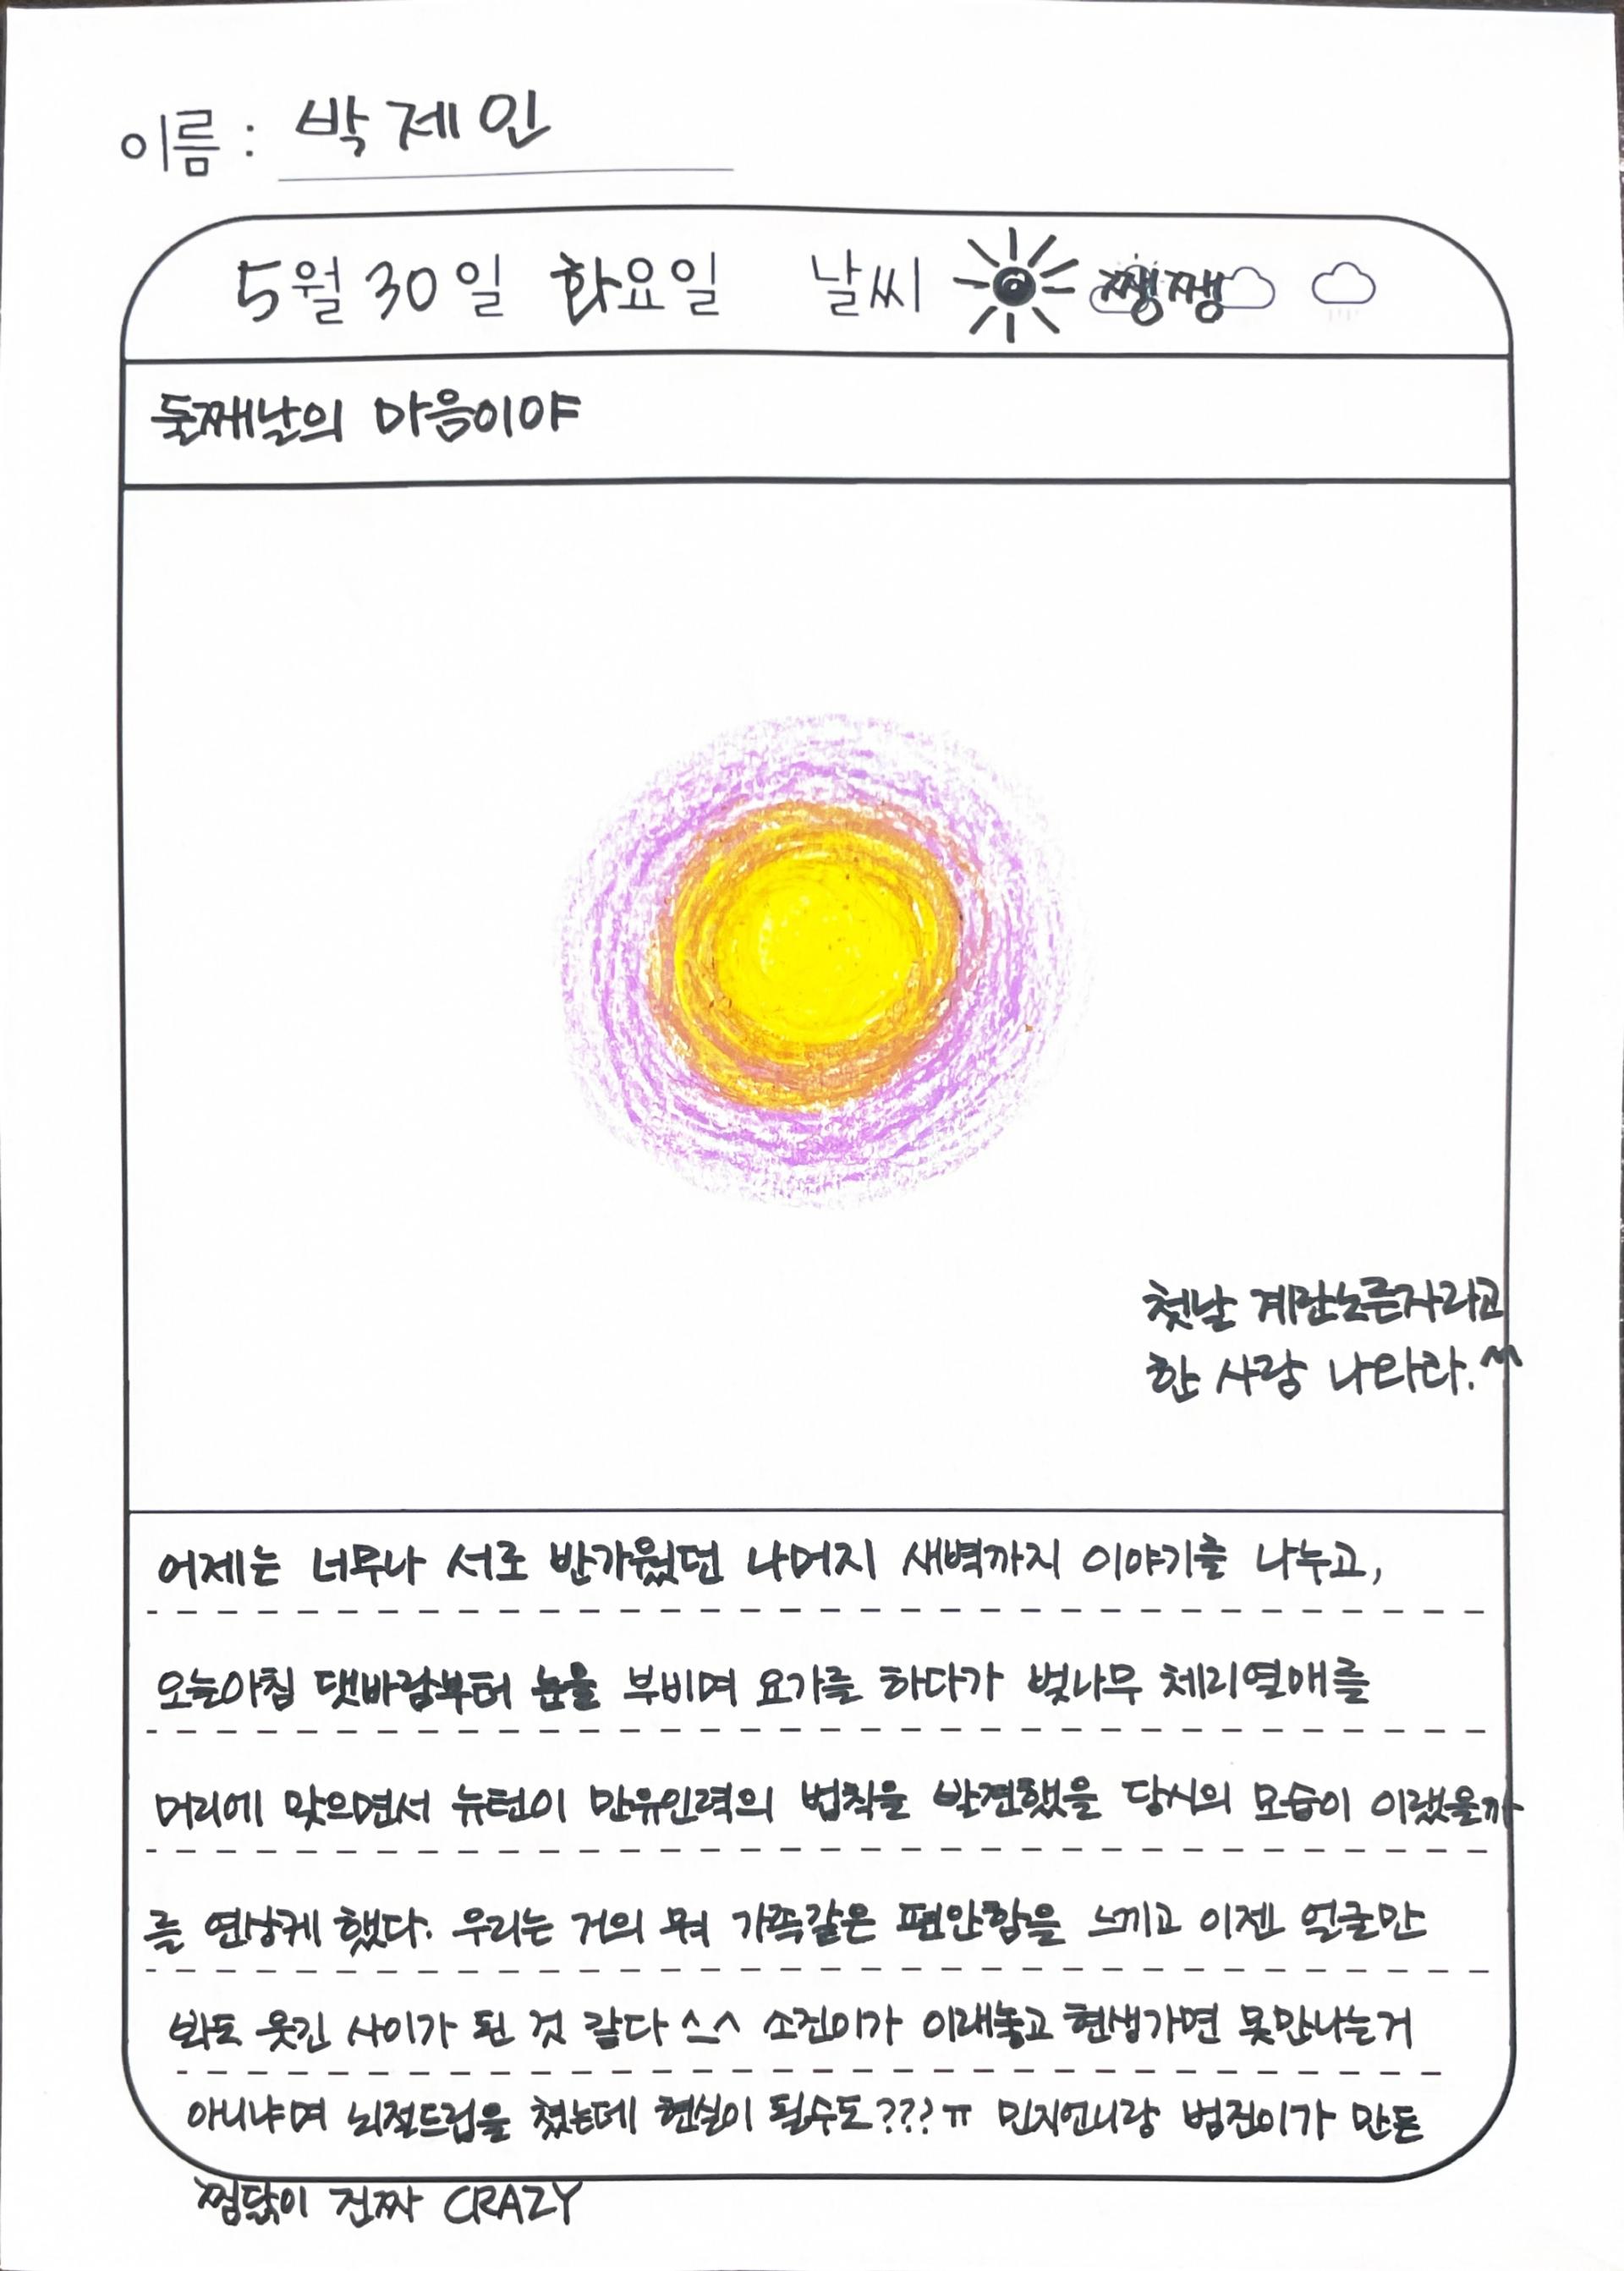 이름 : 박제인
5월 30일 화요일 날씨 쨍쨍
둘째날의 마음이야
첫날 계란노른자라고
한 사람 나와라.^^
어제는 너무나 서로 반가웠던 나머지 새벽까지 이야기를 나누고,
오늘아침 댓바람부터 눈을 부비며 요가를 하다가 벚나무 체리열매를
머리에 맞으면서 뉴턴이 만유인력의 법칙을 발견했을 당시의 모습이 이랬을까
를 연상케 했다. 우리는 거의 뭐 가족같은 편안함을 느끼고 이젠 얼굴만
봐도 웃긴 사이가 된 것 같다 ^_^ 소진이가 이래놓고 현생가면 못만나는거
아니냐며 뇌절드립을 쳤는데 현실이 될수도???ㅠ 민지언니랑 범진이가 만든
찜닭이 진짜 CRAZY